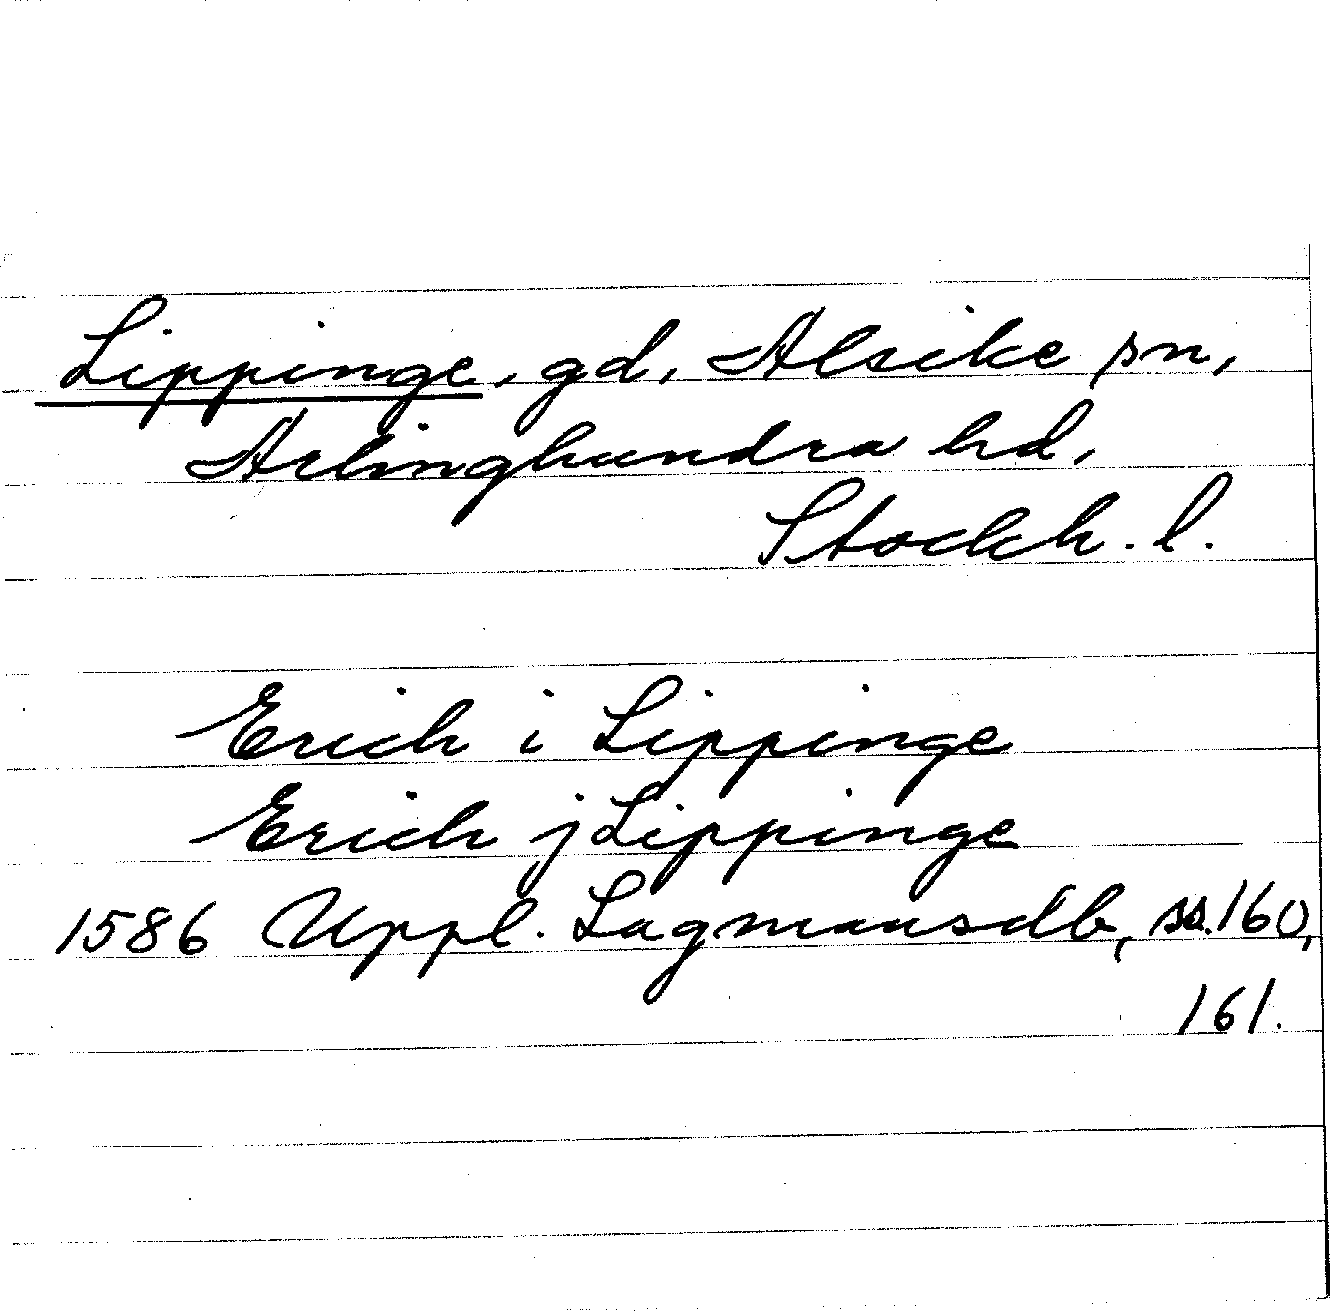 Lippinge, gd, Alsike sn,
Ärlinghundra hd,
Stockh. l.
Erich i Lippinge
Erich j Lippinge
1586 Uppl. Lagmansdb, ss. 160,
161.